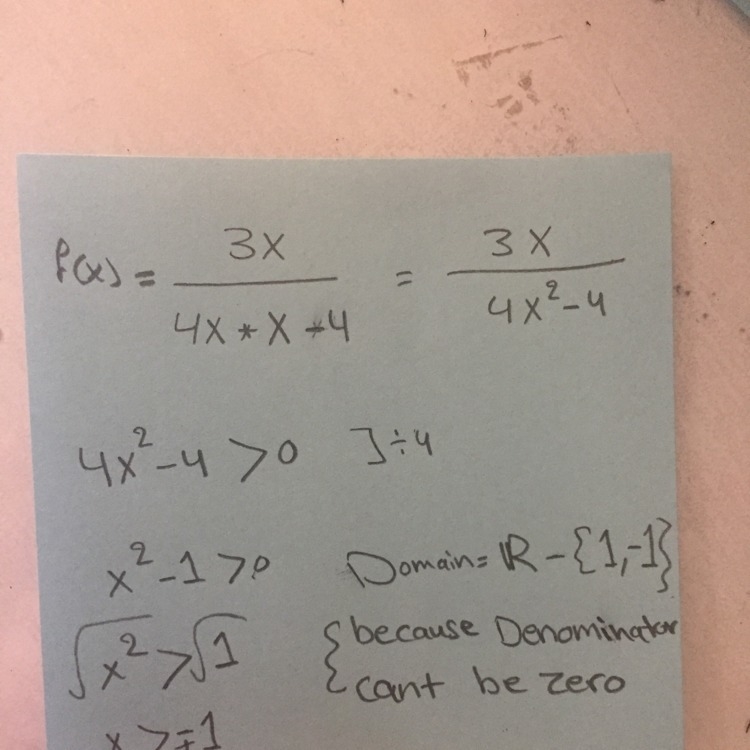 f(x) = 3x / 4x * x - 4 = 3x / 4x² - 4
4x² - 4 > 0 ] ÷ 4
x² - 1 > 0 Domain = ℝ - {1, -1}
√x² > √1 { because Denominator
{ cant be zero
x > ∓1